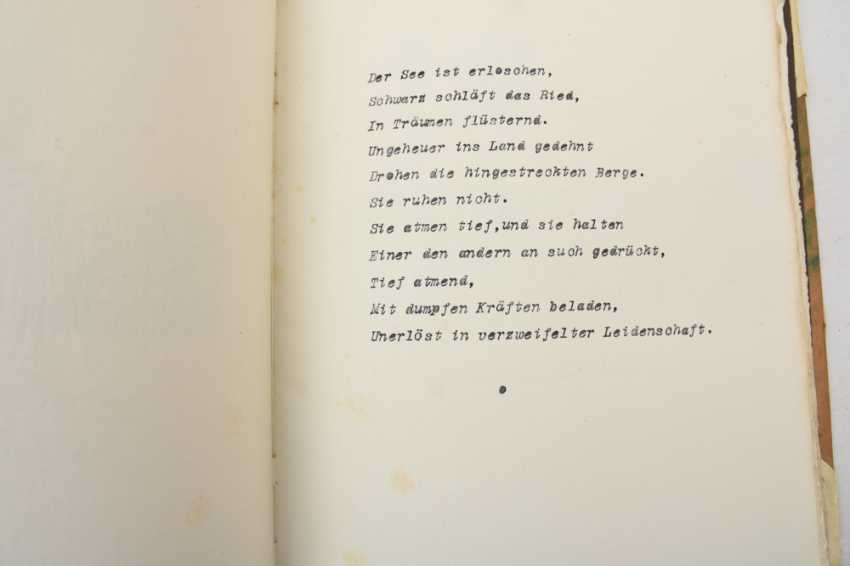 Der See ist erloschen,
Schwarz schläft das Ried,
In Träumen flüsternd.
Ungeheuer ins Land gedehnt
Drohen die hingestreckten Berge.
Sie ruhen nicht.
Sie atmen tief,und sie halten
Einer den andern an such gedrückt,
Tief atmend,
Mit dumpfen Kräften beladen,
Unerlöst in verzweifelter Leidenschaft.